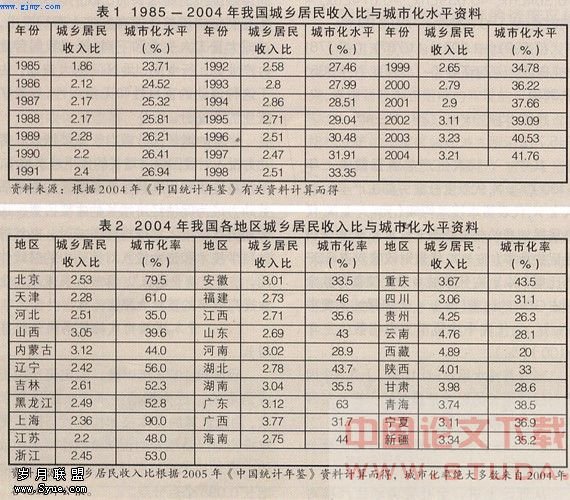 www.gjmy.com
表1 1985—2004年我国城乡居民收入比与城市化水平资料
年份 城乡居民收入比 城市化水平(%) 年份 城乡居民收入比 城市化水平(%) 年份 城乡居民收入比 城市化水平(%)
1985 1.86 23.71 1992 2.58 27.46 1999 2.65 34.78
1986 2.12 24.52 1993 2.8 27.99 2000 2.79 36.22
1987 2.17 25.32 1994 2.86 28.51 2001 2.9 37.66
1988 2.17 25.81 1995 2.71 29.04 2002 3.11 39.09
1989 2.28 26.21 1996 2.51 30.48 2003 3.23 40.53
1990 2.2 26.41 1997 2.47 31.91 2004 3.21 41.76
1991 2.4 26.94 1998 2.51 33.35
资料来源：根据2004年《中国统计年鉴》有关资料计算而得
表2 2004年我国各地区城乡居民收入比与城市化水平资料
地区 城乡居民收入比 城市化率(%) 地区 城乡居民收入比 城市化率(%) 地区 城乡居民收入比 城市化率(%)
北京 2.53 79.5 安徽 3.01 33.5 重庆 3.67 43.5
天津 2.28 61.0 福建 2.73 46 四川 3.06 31.1
河北 2.51 35.0 江西 2.71 35.6 贵州 4.25 26.3
山西 3.05 39.6 山东 2.69 43 云南 4.76 28.1
内蒙古 3.12 44.0 河南 3.02 28.9 西藏 4.89 20
辽宁 2.42 56.0 湖北 2.78 43.7 陕西 4.01 33
吉林 2.61 52.3 湖南 3.04 35.5 甘肃 3.98 28.6
黑龙江 2.49 52.8 广东 3.12 63 青海 3.74 38.5
上海 2.36 90.0 广西 3.77 31.7 宁夏 3.11 36.9
江苏 2.2 48.0 海南 2.75 44 新疆 3.34 35.2
浙江 2.45 53.0
中国论文下载
城乡居民收入比根据2005年《中国统计年鉴》资料计算而得，城市化率绝大多数来自2004年
岁月联盟
www.Syue.com